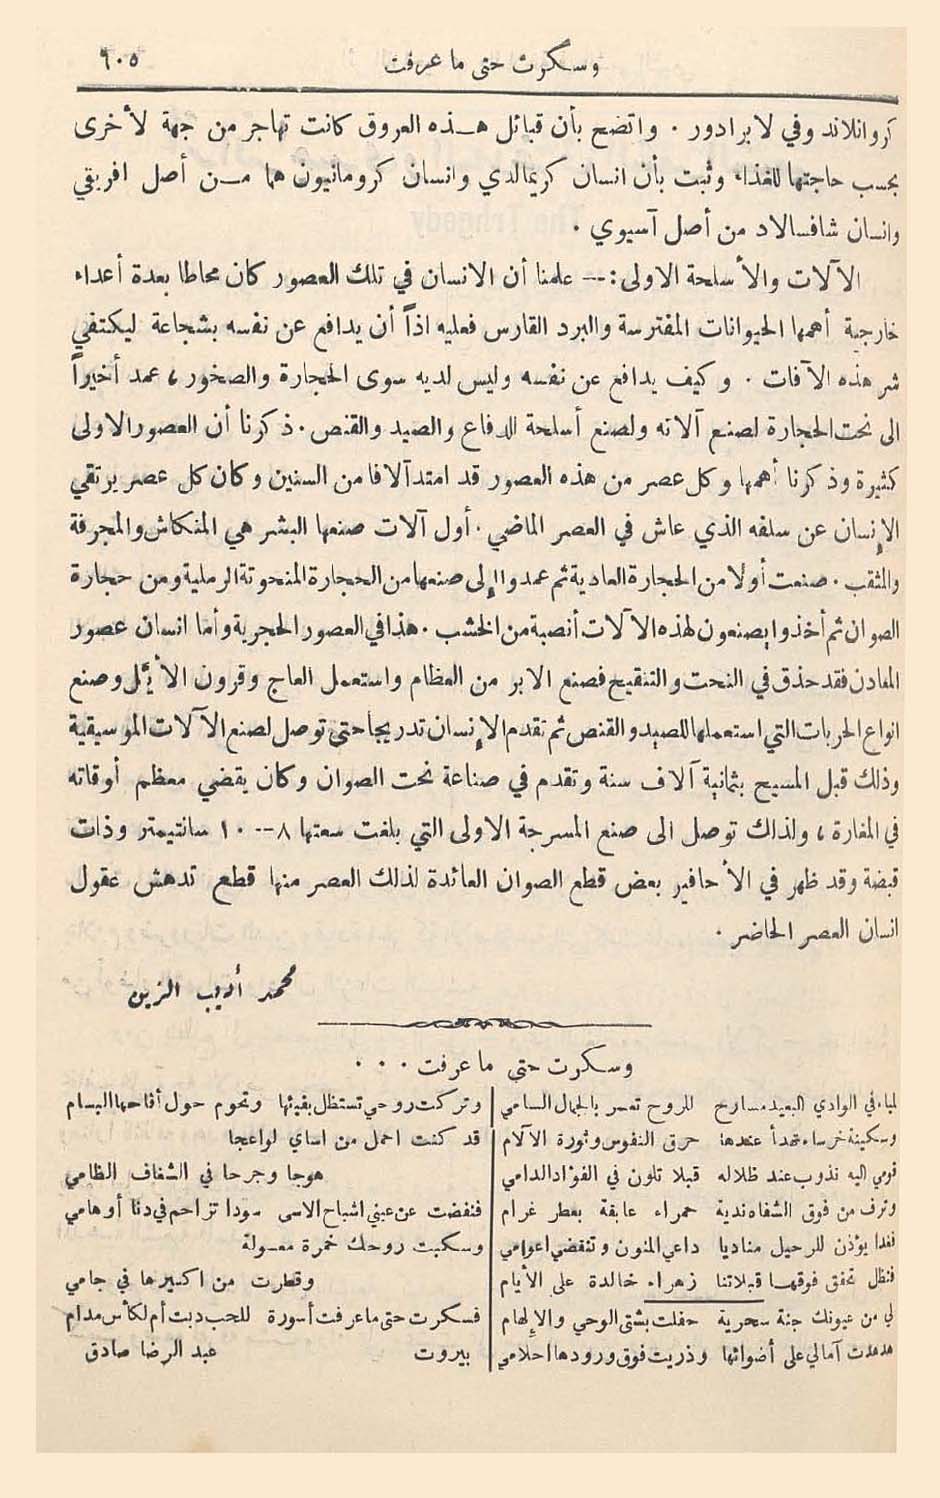 وسكرت حتى ما عرفت
٩٠٥
كروانلاند وفي لابرادور . واتضح بأن قبائل هذه العروق كانت تهاجر من جهة لأخرى
بحسب حاجتها للغذاء وثبت بأن انسان كريمالدي وانسان كرومانيون هما من أصل افريقي
وانسان شافسالاد من أصل آسيوي .
الآلات والأسلحة الاولى : — علمنا أن الانسان في تلك العصور كان محاطا بعدة أعداء
خارجية أهمها الحيوانات المفترسة والبرد القارس فعليه اذاً أن يدافع عن نفسه بشجاعة ليكتفي
شر هذه الآفات . وكيف يدافع عن نفسه وليس لديه سوى الحجارة والصخور ، عمد أخيراً
الى نحت الحجارة لصنع آلاته ولصنع أسلحة للدفاع والصيد والقنص . ذكرنا أن العصور الاولى
كثيرة وذكرنا أهمها وكل عصر من هذه العصور قد امتد آلافا من السنين وكان كل عصر يرتقي
الإنسان عن سلفه الذي عاش في العصر الماضي . أول آلات صنعها البشر هي المنكاش والمجرفة
والمثقب . صنعت أولا من الحجارة العادية ثم عمدوا إلى صنعها من الحجارة المنحوتة الرملية ومن حجارة
الصوان ثم أخذوا يصنعون لهذه الآلات أنصبة من الخشب . هذا في العصور الحجرية وأما انسان عصور
المعادن فقد حذق في النحت والتنقيح فصنع الابر من العظام واستعمل العاج وقرون الأيّل وصنع
انواع الحربات التي استعملها للصيد والقنص ثم تقدم الإنسان تدريجا حتى توصل لصنع الآلات الموسيقية
وذلك قبل المسيح بثمانية آلاف سنة وتقدم في صناعة نحت الصوان وكان يقضي معظم أوقاته
في المغارة ، ولذلك توصل الى صنع المسرجة الاولى التي بلغت سعتها ٨ — ١٠ سانتيمتر وذات
قبضة وقد ظهر في الأحافير بعض قطع الصوان العائدة لذلك العصر منها قطع تدهش عقول
انسان العصر الحاضر .
محمد أديب الزين
وسكرت حتى ما عرفت . . .
لمياء في الوادي البعيد مسارح للروح تعمر بالجمال السامي
وسكينة خرساء تهدأ عندها حرق النفوس وثورة الآلام
قومي اليه نذوب عند ظلاله قبلا تلون في الفؤاد الدامي
وترف من فوق الشفاه ندية حمراء عابقة بعطر غرام
فغدا يؤذن للرحيل مناديا داعي المنون وتنقضي اعوامي
فنظل تخفق فوقها قبلاتنا زهراء خالدة على الأيام
لي من عيونك جنة سحرية حفلت بشتى الوحي والإلهام
هدهدت آمالي على أضوائها وذريت فوق ورودها احلامي
وتركت روحي تستظل بفيئها وتحوم حول أقاحها البسام
قد كنت احمل من اساي لواعجا
هوجا وجرحا في الشغاف الظامي
فنفضت عن عيني اشباح الاسى سودا تزاحم في دنا أوهامي
وسكبت روحك خمرة معسولة
وقطرت من اكسيرها في جامي
فسكرت حتى ما عرفت أسورة للحب دبت أم لكأس مدام
بيروت عبد الرضا صادق